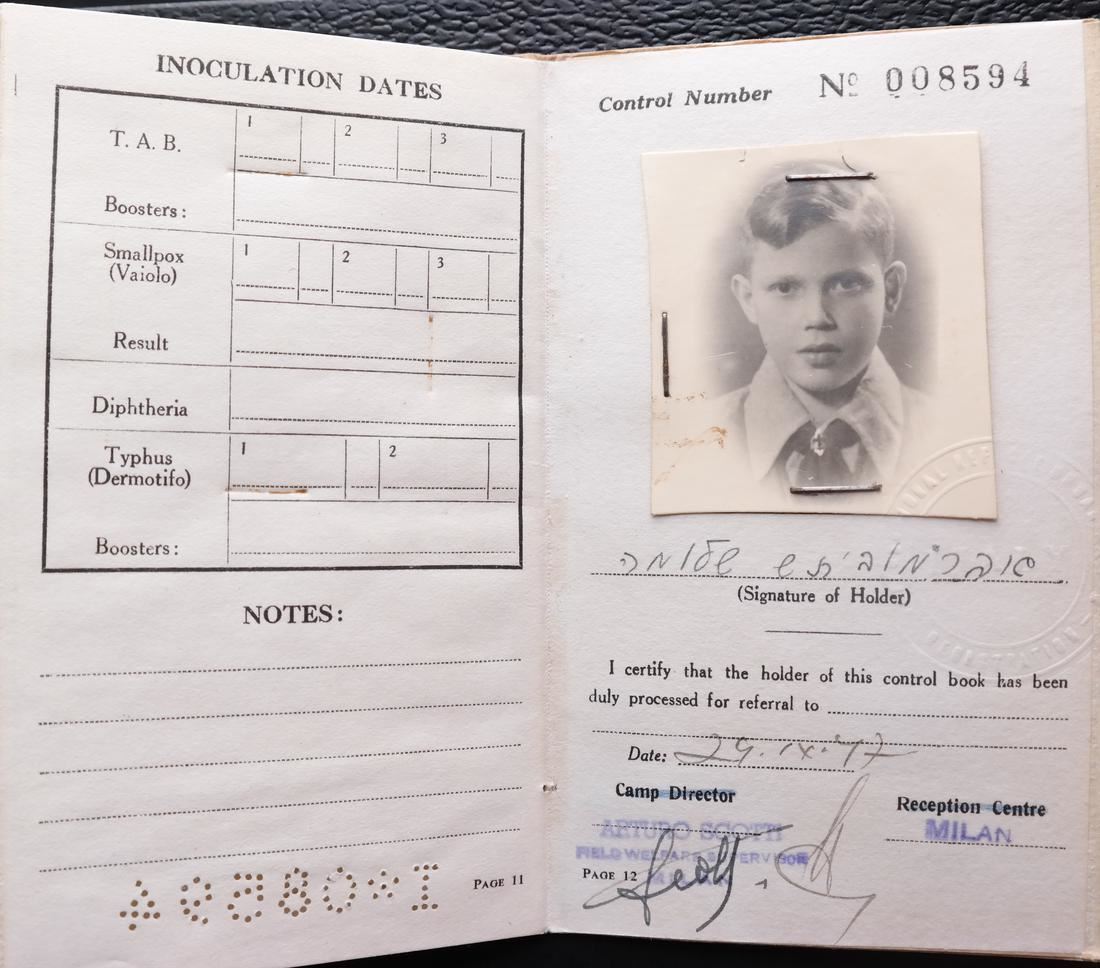 INOCULATION DATES
T. A. B. 1 2 3
Boosters:
Smallpox 1 2 3
(Vaiolo)
Result
Diphtheria
Typhus 1 2
(Dermotifo)
Boosters:
NOTES:
I*08594
PAGE 11
Control Number Nº 008594
אברמוביתש שלומה
(Signature of Holder)
I certify that the holder of this control book has been
duly processed for referral to
Date: 29.IX.47
Camp Director
Reception Centre
ARTURO SCOTTI
MILAN
FIELD WELFARE SUPERVISOR
PAGE 12